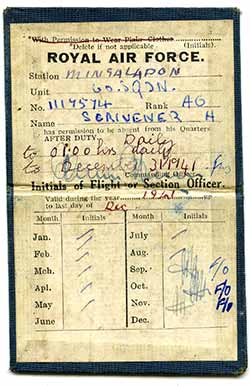 "With Permission to Wear Plain Clothes
*Delete if not applicable (Initials).
ROYAL AIR FORCE.
Station MINGALADON
Unit 60. SQDN.
No. 1117574 Rank AC
SCRIVENER H
has permission to be absent from his Quarters
AFTER DUTY. Daily
to 01.00 hrs daily
to December 31 1941
Commanding Officer
Initials of Flight or Section Officer.
Valid during the year 1941
to last day of Dec
Month Initials Month Initials
Jan. July
Feb. Aug. F/O
Mch. Sep.
Apl. Oct. F/O
May Nov. F/O
June Dec.